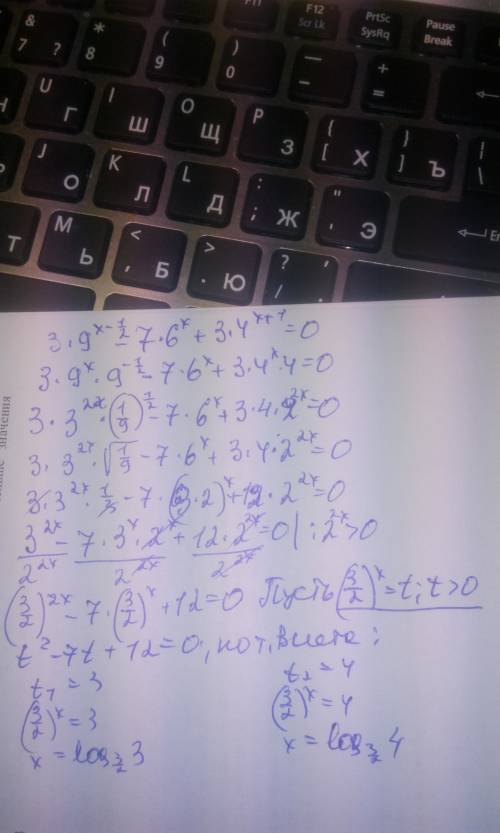 F11 F12 Scr Lk PrtSc SysRq Pause Break
& 7 ? * 8 ( 9 ) 0 — - + =
U Г I Ш O Щ P З { [ Х } ] Ъ | \
J О K Л L Д : ; Ж " ' Э En
Т М Ь < , Б > . Ю ? / ,
значения
3·9^{x-\frac{1}{2}}-7·6^x+3·4^{x+1}=0
3·9^x·9^{-\frac{1}{2}}-7·6^x+3·4^x·4=0
3·3^{2x}·(\frac{1}{9})^{\frac{1}{2}}-7·6^x+3·4·2^{2x}=0
3·3^{2x}·\sqrt{\frac{1}{9}}-7·6^x+3·4·2^{2x}=0
3·3^{2x}·\frac{1}{3}-7·(3·2)^x+12·2^{2x}=0
\frac{3^{2x}}{2^{2x}}-\frac{7·3^x·2^x}{2^{2x}}+\frac{12·2^{2x}}{2^{2x}}=0 |:2^{2x}>0
(\frac{3}{2})^{2x}-7·(\frac{3}{2})^x+12=0 Пусть (\frac{3}{2})^x=t; t>0
t^2-7t+12=0, по т. Виета:
t_1=3 t_2=4
(\frac{3}{2})^x=3 (\frac{3}{2})^x=4
x=log_{\frac{3}{2}}3 x=log_{\frac{3}{2}}4